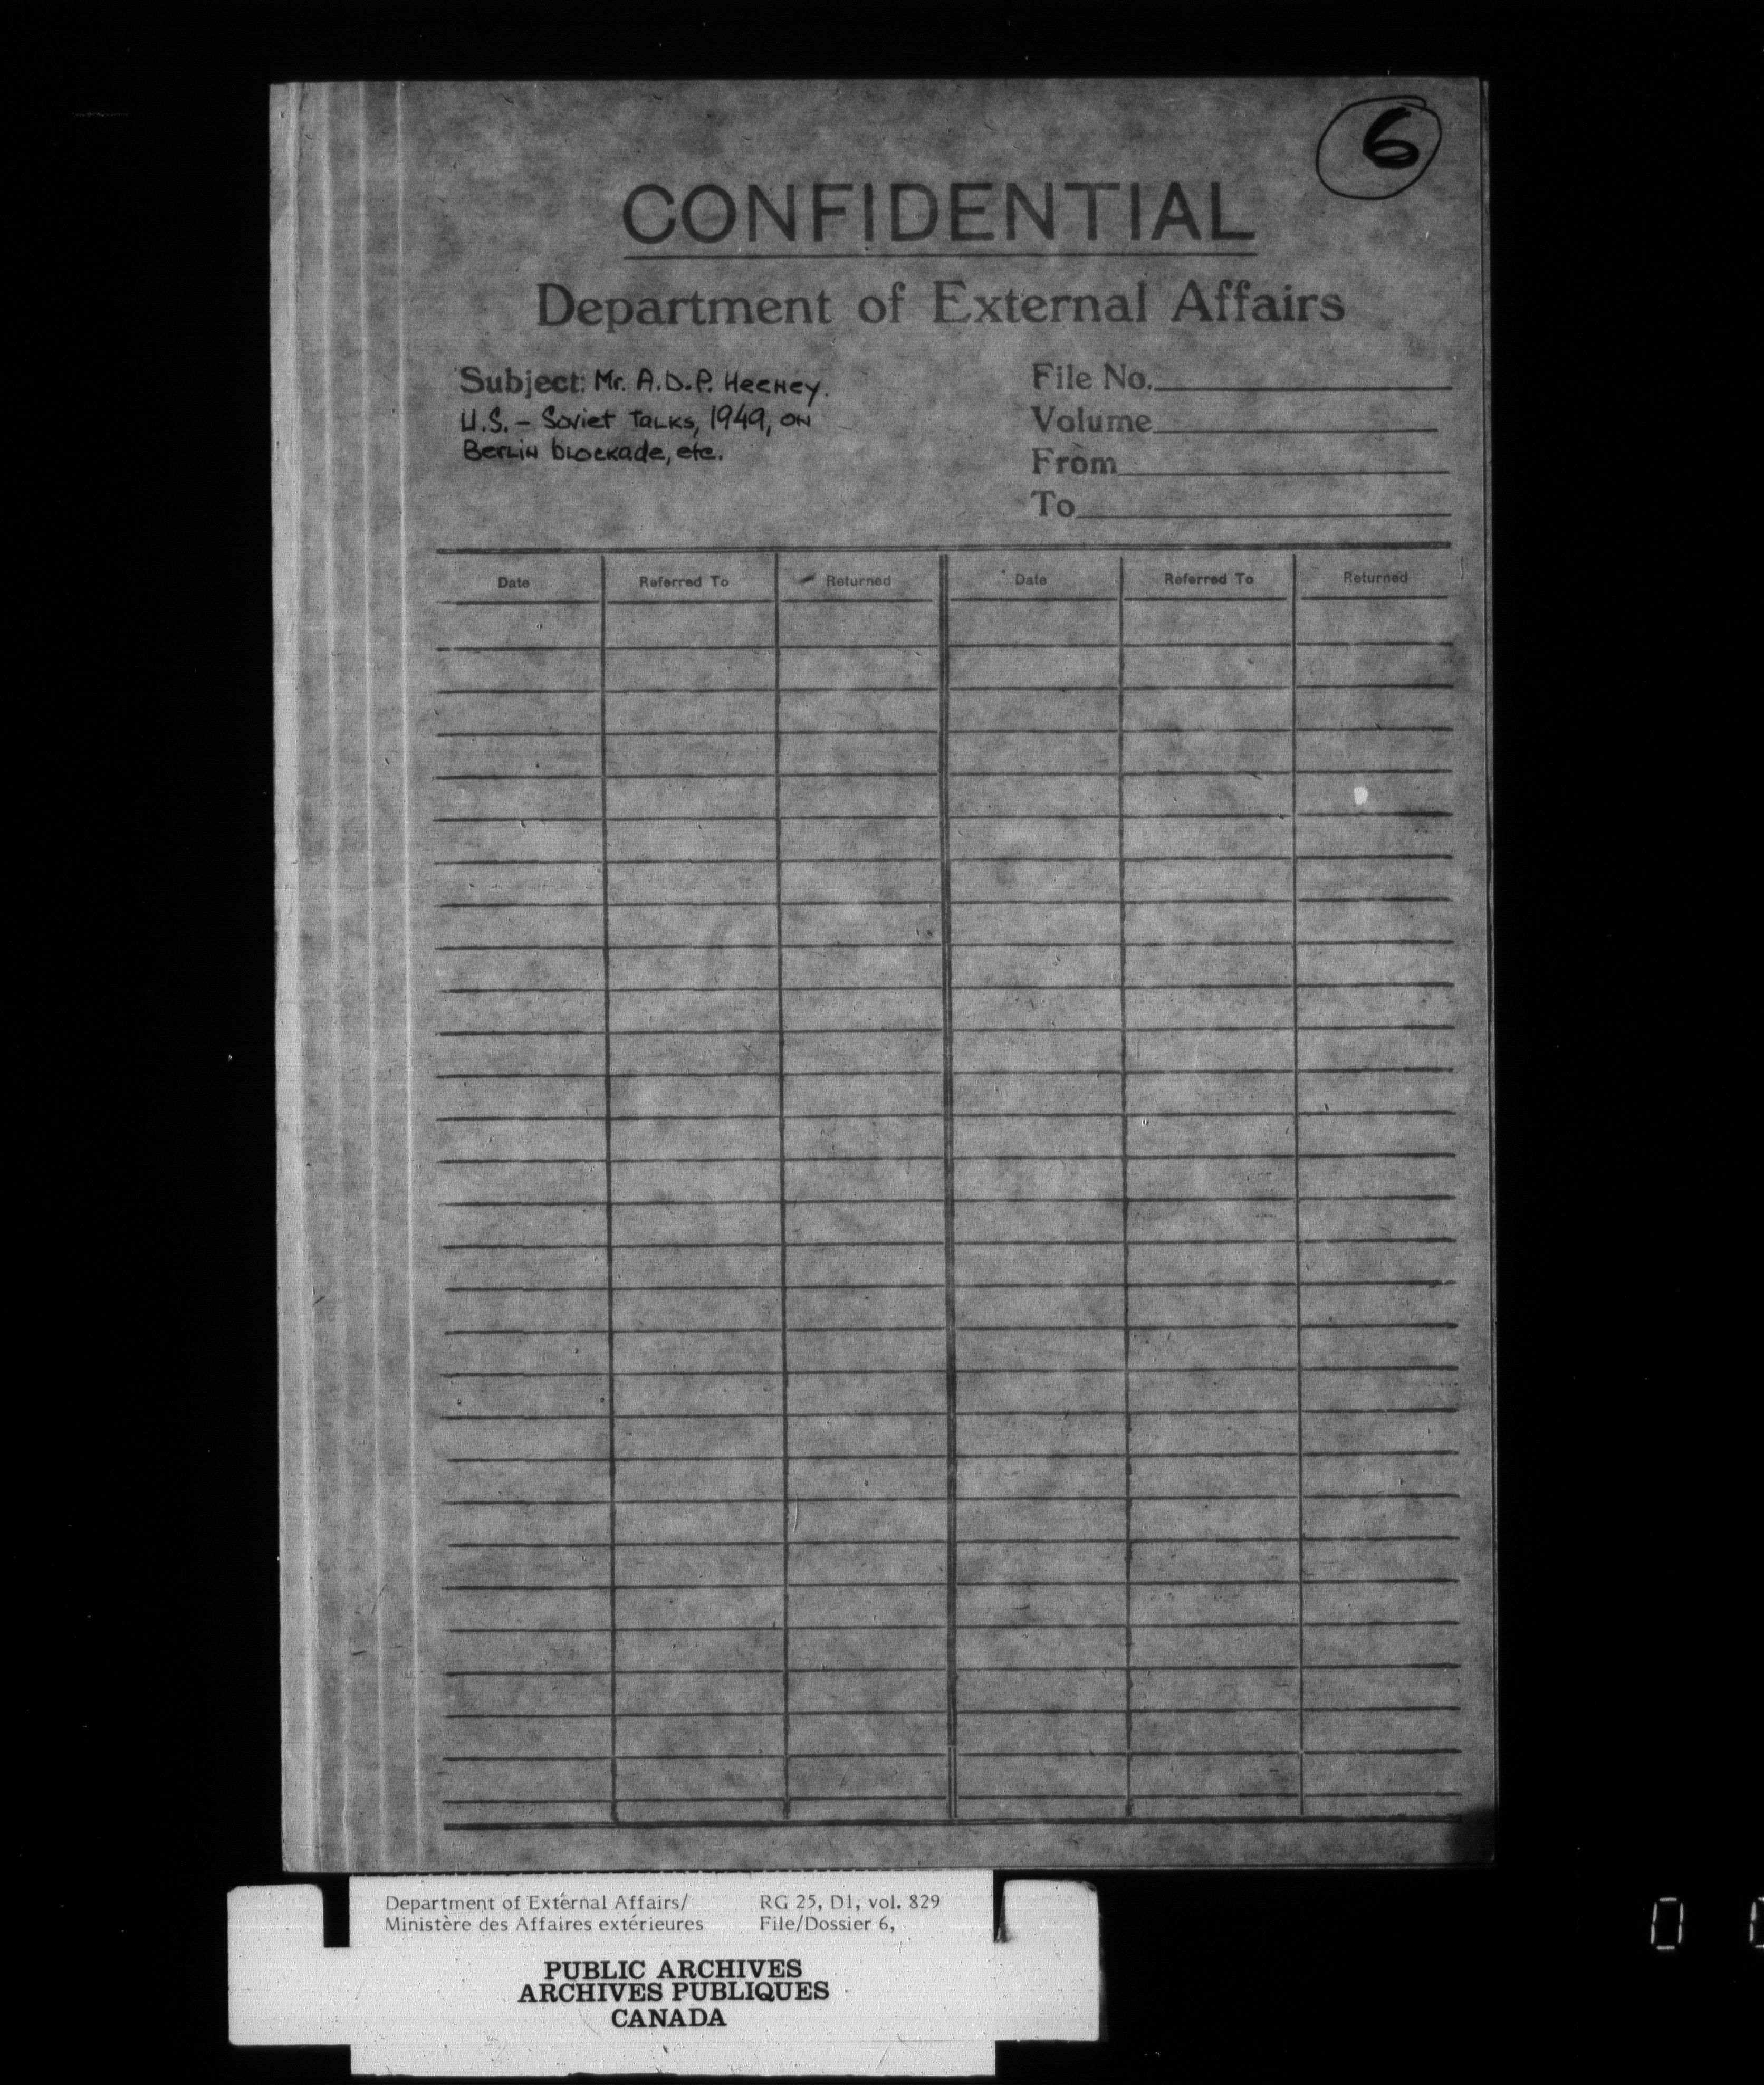 6
CONFIDENTIAL
Department of External Affairs
Subject: Mr. A.D.P. Heeney.
U.S. - Soviet Talks, 1949, on
Berlin blockade, etc.
File No.
Volume
From
To
Date Referred To Returned Date Referred To Returned
Department of External Affairs/ RG 25, D1, vol. 829
Ministère des Affaires extérieures File/Dossier 6,
PUBLIC ARCHIVES
ARCHIVES PUBLIQUES
CANADA
0